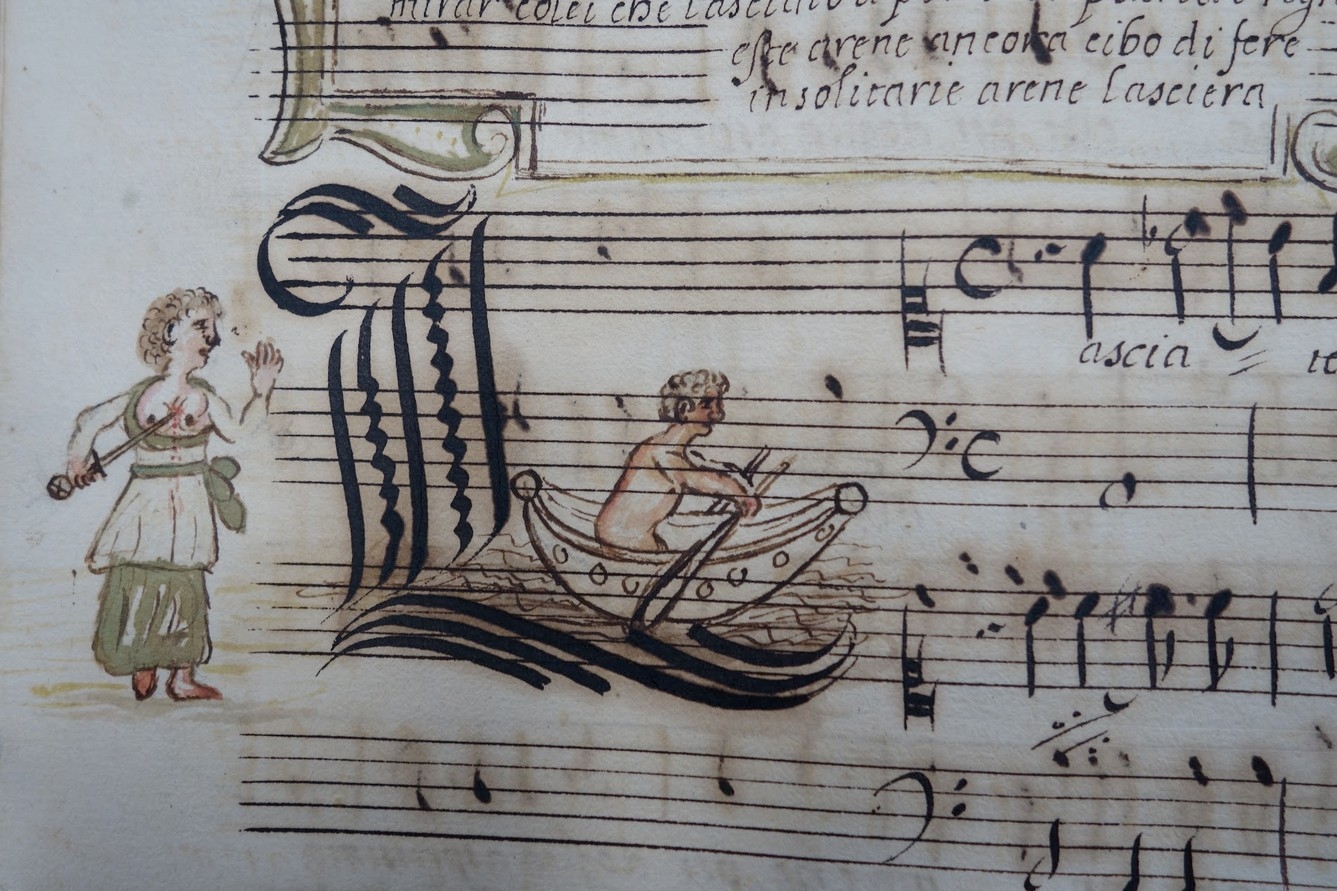 mirar colei che lasciato
este arene ancora cibo di fere
in solitarie arene lasciera
L
ascia